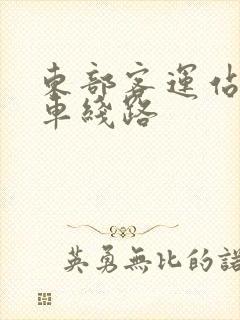 東部客運佔
車綫路
英勇無比的諾